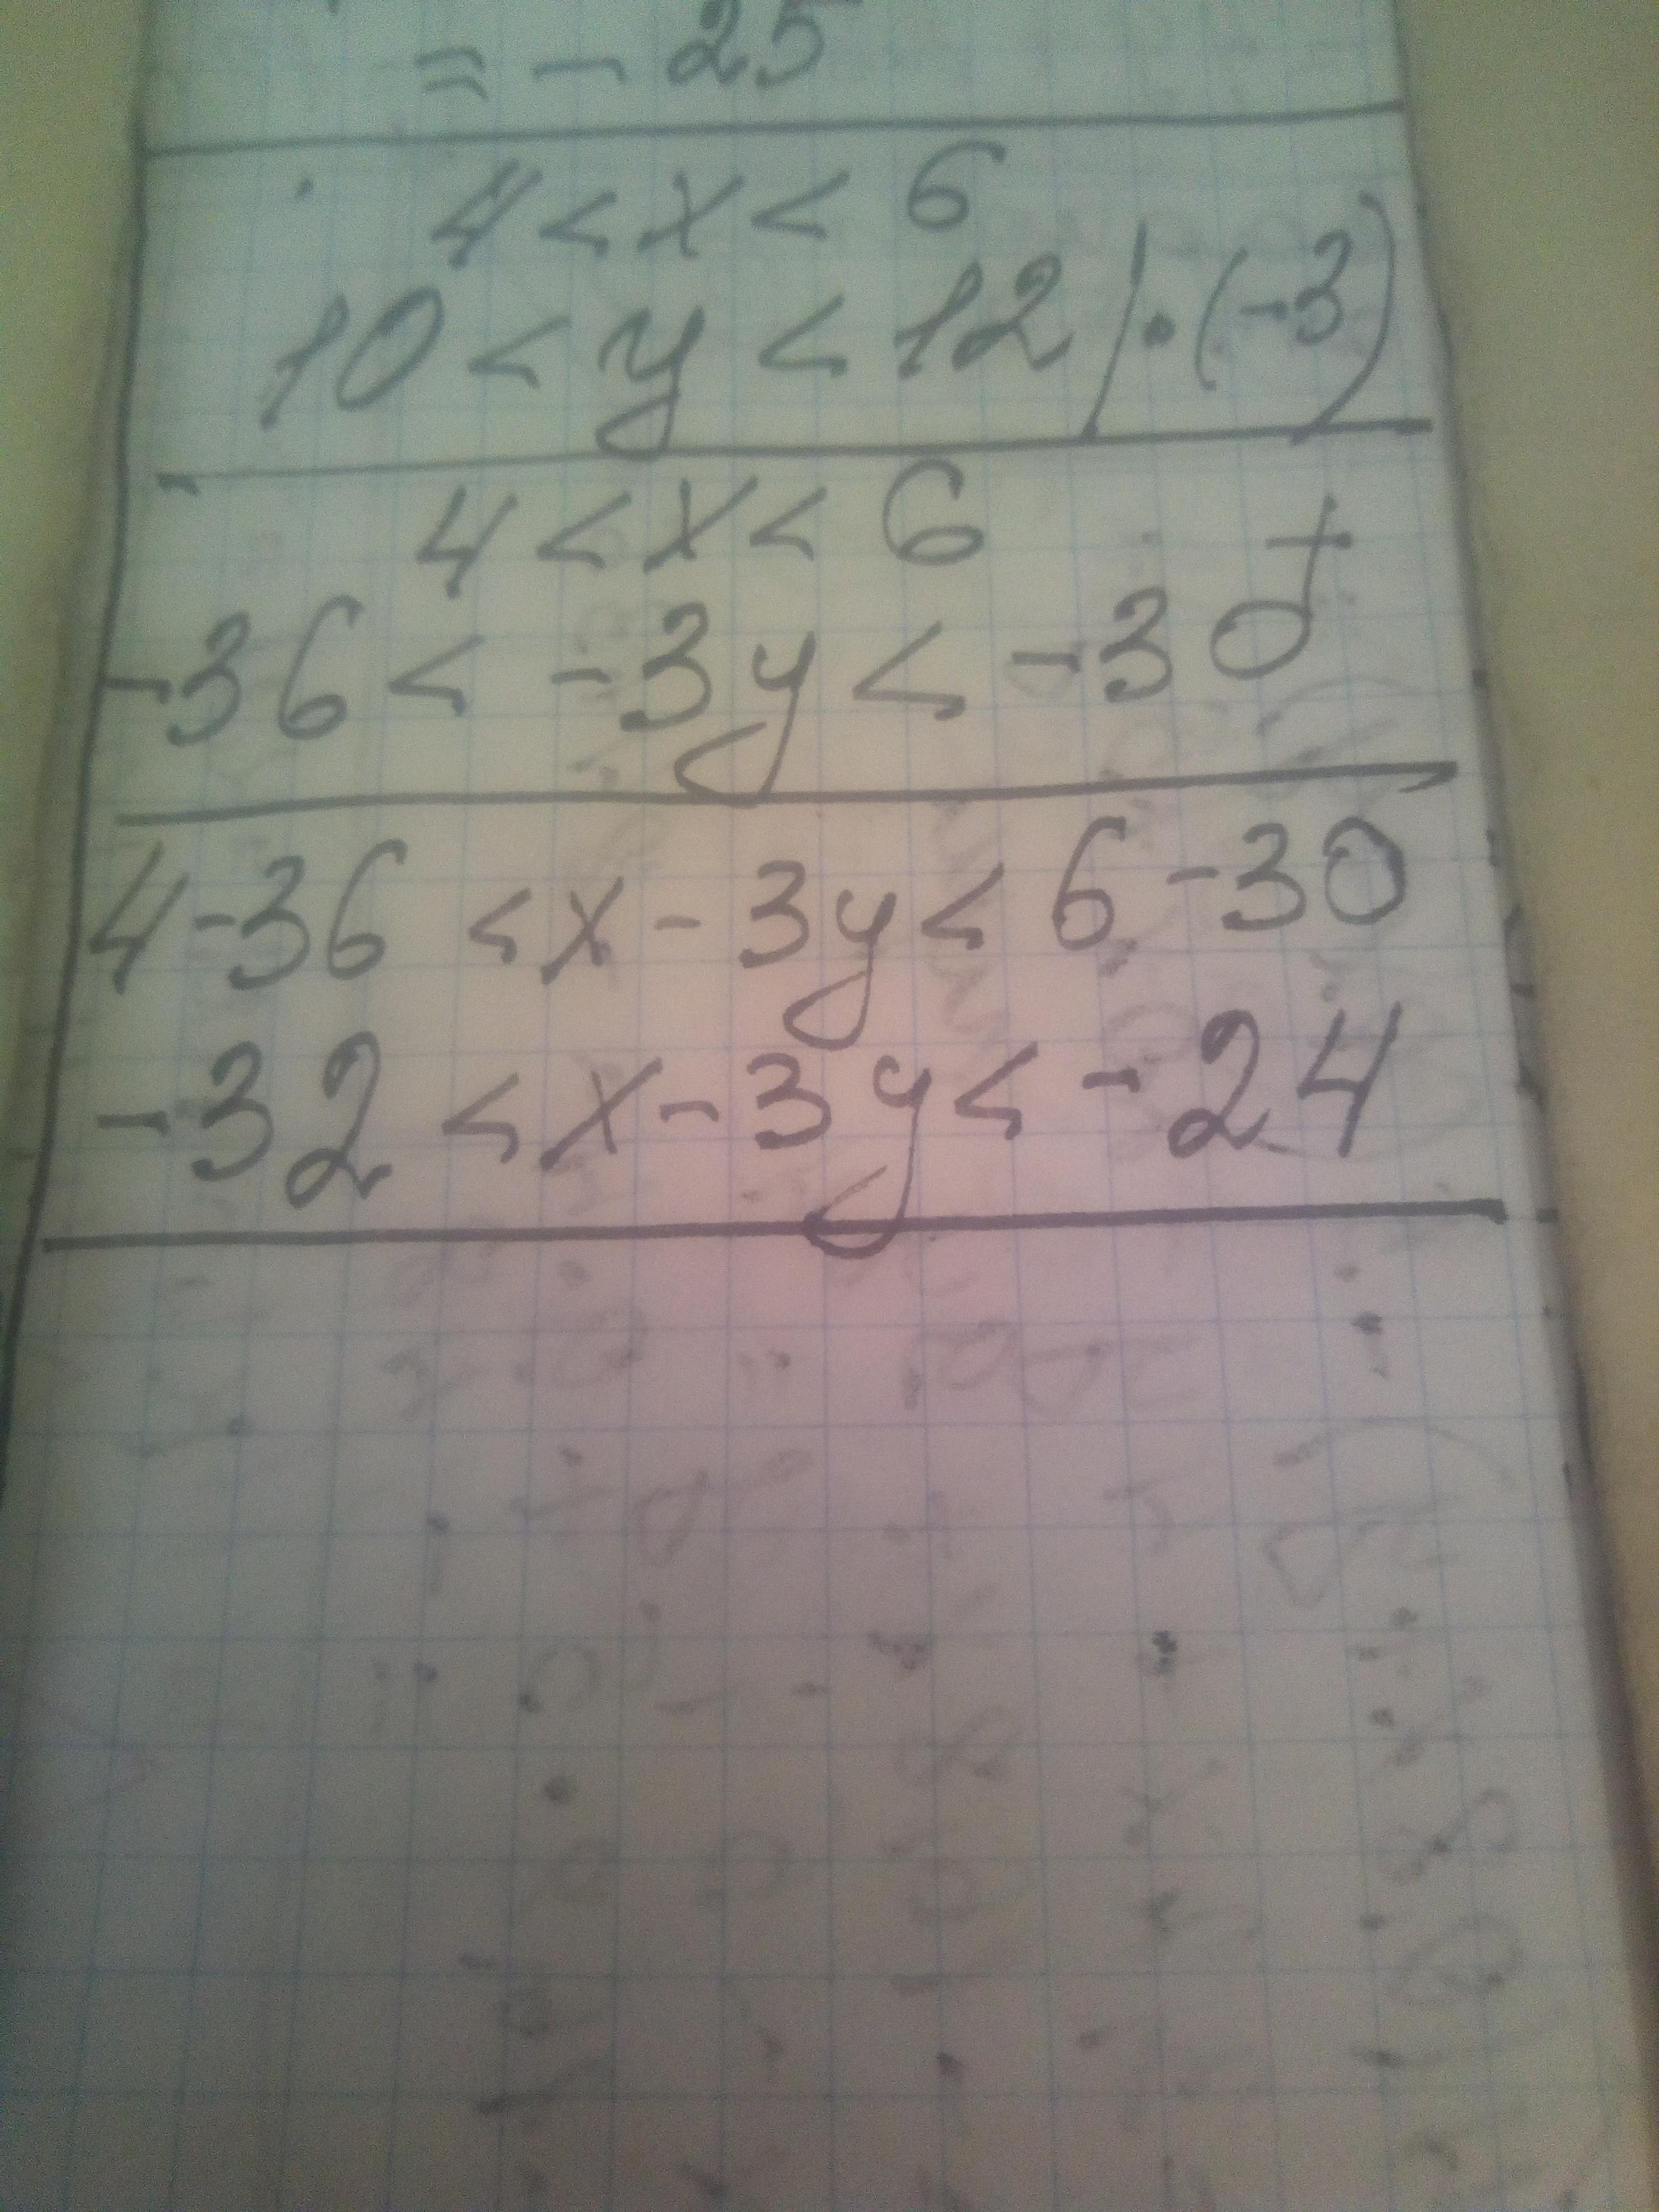 = - 25
4 < x < 6
10 < y < 12 | · (-3)
4 < x < 6
+
-36 < -3y < -30
4-36 < x - 3y < 6 - 30
-32 < x - 3y < - 24